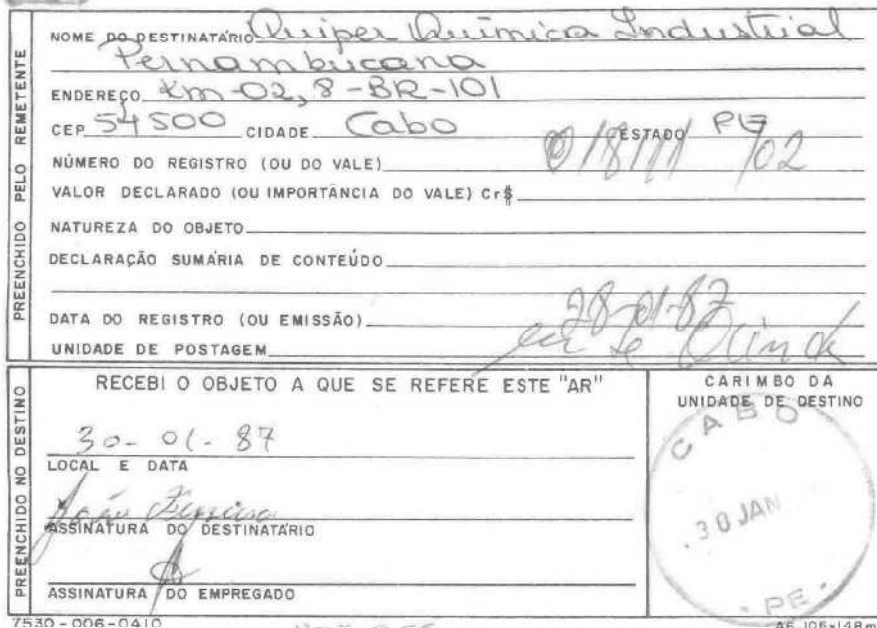 NOME DO DESTINATÁRIO Quiper Química Industrial
Pernambucana
ENDEREÇO Km-02,8-BR-101
CEP 54500 CIDADE Cabo ESTADO PE
NÚMERO DO REGISTRO (OU DO VALE)
VALOR DECLARADO (OU IMPORTÂNCIA DO VALE) Cr$
NATUREZA DO OBJETO
DECLARAÇÃO SUMÁRIA DE CONTEÚDO
DATA DO REGISTRO (OU EMISSÃO) 28-01-87
UNIDADE DE POSTAGEM
PREENCHIDO PELO REMETENTE
RECEBI O OBJETO A QUE SE REFERE ESTE "AR"
30-01-87
LOCAL E DATA
ASSINATURA DO DESTINATÁRIO
ASSINATURA DO EMPREGADO
PREENCHIDO NO DESTINO
CARIMBO DA
UNIDADE DE DESTINO
CABO
30 JAN
- PE -
7530-006-0410
A6-105x148m